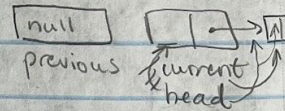 null
previous
current
head